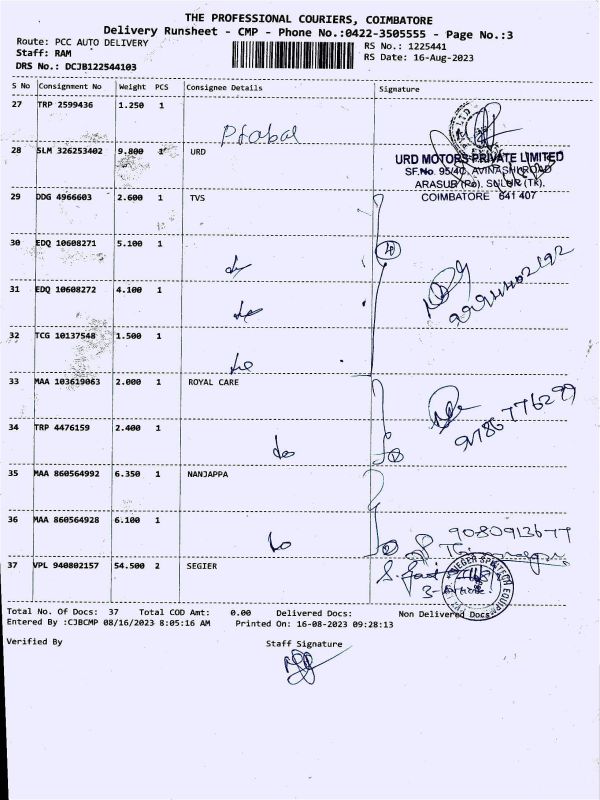 THE PROFESSIONAL COURIERS, COIMBATORE
Delivery Runsheet - CMP - Phone No.:0422-3505555 - Page No.:3
Route: PCC AUTO DELIVERY
RS No.: 1225441
Staff: RAM
RS Date: 16-Aug-2023
DRS No.: DCJB122544103
S No Consignment No Weight PCS Consignee Details Signature
27 TRP 2599436 1.250 1
28 SLM 326253402 9.800 1 URD
URD MOTORS PRIVATE LIMITED
SF.No. 95/4C, AVINASHI ROAD
ARASUR (Po), SULUR (TK),
COIMBATORE 641 407
29 DDG 4966603 2.600 1 TVS
30 EDQ 10608271 5.100 1
31 EDQ 10608272 4.100 1
32 TCG 10137548 1.500 1
33 MAA 103619063 2.000 1 ROYAL CARE
9786776299
34 TRP 4476159 2.400 1
35 MAA 860564992 6.350 1 NANJAPPA
36 MAA 860564928 6.100 1
9080913677
37 VPL 940802157 54.500 2 SEGIER
Total No. Of Docs: 37 Total COD Amt: 0.00 Delivered Docs: Non Delivered Docs:
Entered By :CJBCMP 08/16/2023 8:05:16 AM Printed On: 16-08-2023 09:28:13
Verified By Staff Signature